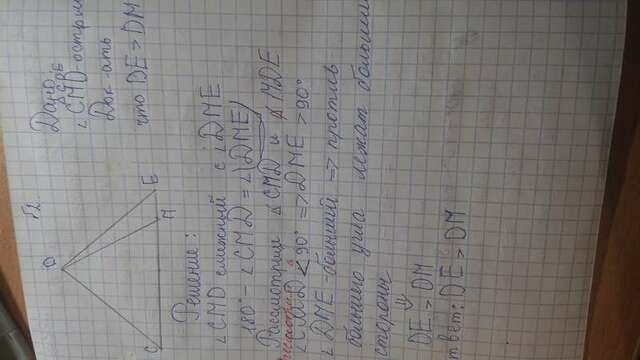 №2
D
C
M
E
Дано:
△CDE
∠CMD-острый
Док-ать
что DE > DM
Решение:
∠CMD смежный с ∠DME
180° - ∠CMD = ∠(DME)
Рассмотрим △CMD и △MDE
∠CMD < 90° => DME > 90°
∠DME - больший => против
большего угла лежат большие
стороны
⇓
DE > DM
ответ: DE > DM